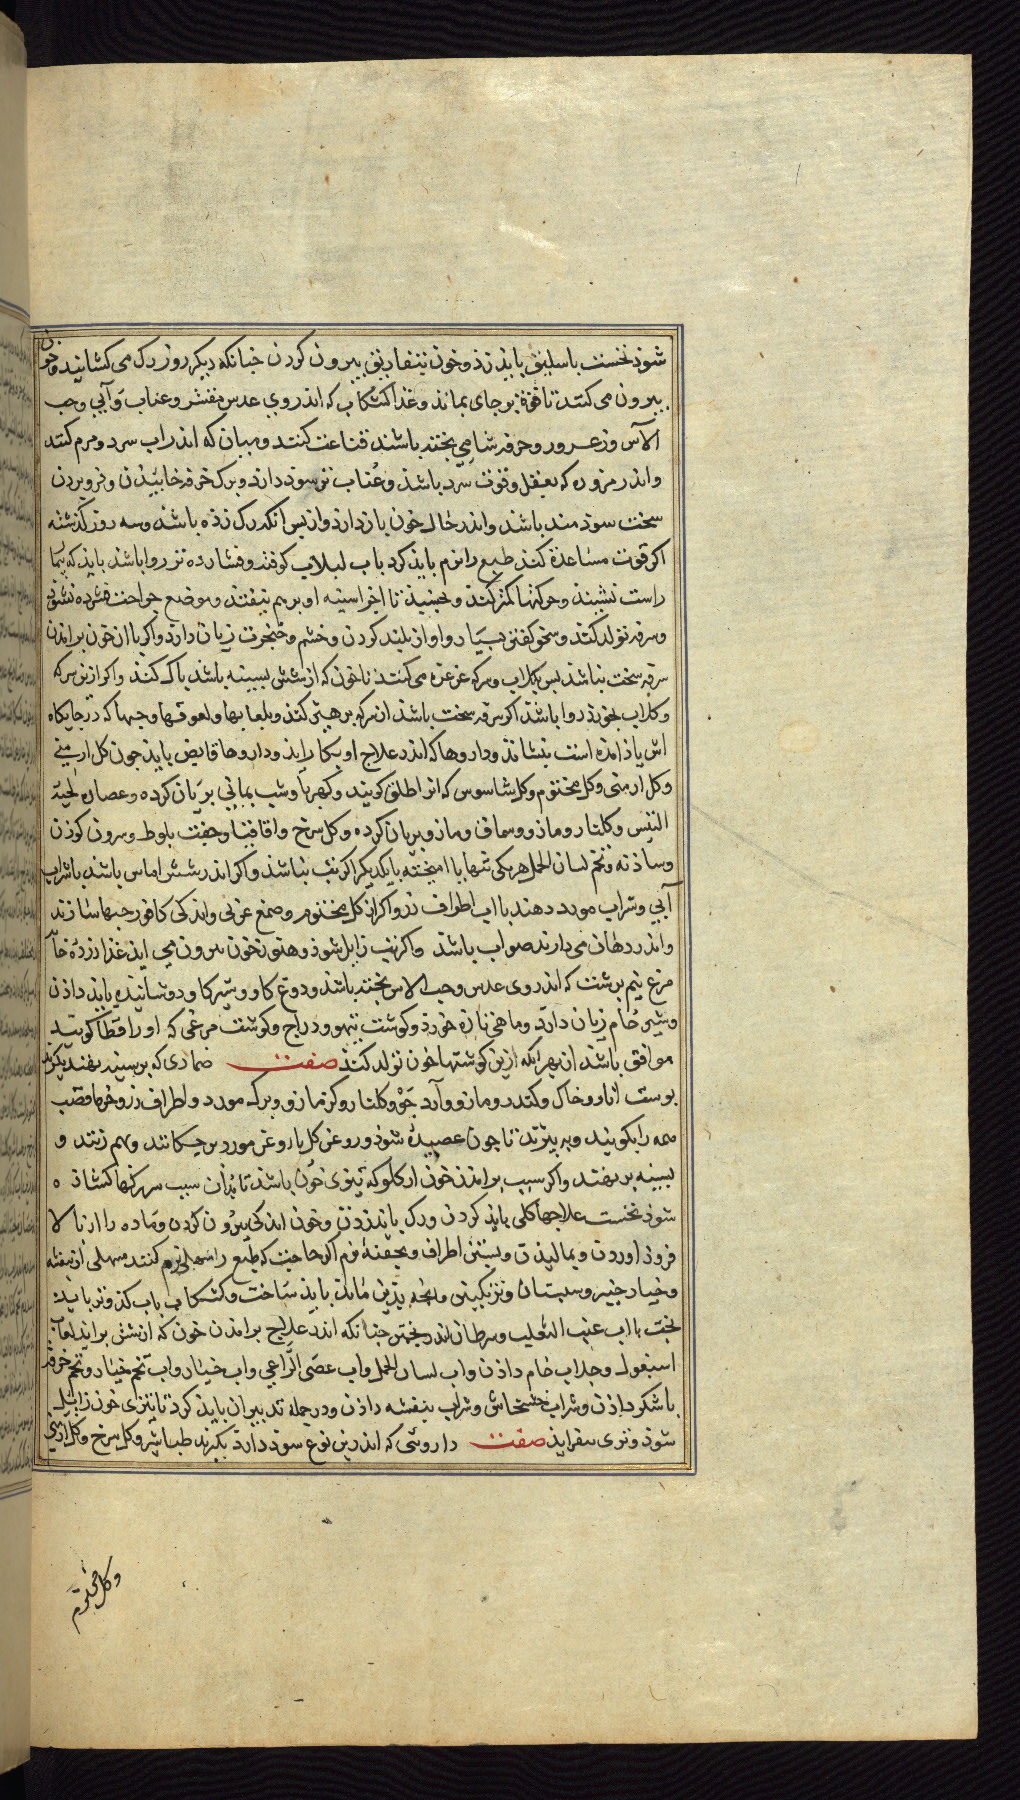 شوذ نخست باسلیق بایذ زذ و خون بتفاریق بیرون کردن جنانکه دیکر روز رک می کشایند و خون
بیرون می کنند تا قوة بر جای بماند و غذا کشکاب که اندر وی عدس مقشر و عناب و آبی و حب
الآس و زعرور و خرفه شامی بخته باشند قناعت کنند و میبان که اندر اب سرد و مرم کنند
و اندر مزوره که بفعل و قوت سرد باشذ و عُناب تر سوذ دارذ و برک خرفه خاییذن و فرو بردن
سخت سوذمند باشد و اندر حال خون باز دارذ و از بس انکه رک زذه باشند و سه روز کذشته
اکر قوت مساعدة کند طبع را نرم بایذ کرد باب لبلاب کوفته و فشارده نیز روا باشد بایذ که بیمار
راست نشیند و حرکتها کمتر کند و نخسبذ تا اجزا سینه او بر هم نیفتذ و موضع جراحت فشرده نشوذ
و سرفه تولد کند و سخن کفتن بسیار و اواز بلند کردن و خشم و ضجرت زیان دارذ و اکر با ان خون برامدن
سرفه سخت نباشذ بس بکلاب و سرکه غرغره می کنند تا خون که از شش بسینه باشذ باک کند و اکر ازین سرکه
و کلاب بخورد روا باشذ اکر سرفه سخت باشذ از سرکه برهیز کند و بلعابها و لعوقها و حبها که در جایکاه
اش یاذ امده است بنشانذ و داروها که اندر علاج او بکار ایذ و داروها قابض بایذ جون کل ارمنی
و کل ارمنی و کل مختوم و کل شاموس که انرا طلق کویند و کهربا و شب یمانی بریان کرده و عصاره لحیة
التیس و کلنار و مازو و سماق و مازو بریان کرده و کل سرخ و اقاقیا و جفت بلوط و سرون کوزن
و ساذنه و تخم لسان الحمل هر یکی تنها یا امیخته با یکدیکر اکر تب نباشذ و اکر اندر شش اماس باشذ با شراب
آبی و شراب مورد دهند با اب اطراف رز و اکر از کل مختوم و صمغ عربی و اندکی کافور حبها سازند
و اندر دهان می دارند صواب باشد و اکر تب زایل شوذ و هنوز خون بیرون می ایذ غذا زردهٔ خایه
مرغ نیم برشت که اندر وی عدس و حب الاس بخته باشند و دوغ کاو و شیر کاو دوشانیده بایذ داذن
و شیر خام زیان دارد و ماهی تازه خورذ و کوشت تیهو و دراج و کوشت مرغی که او را قطا کویند
موافق باشذ از بهر انکه ازین کوشتها خون تولد کند صفت ضماذی که بر سینه نهند بکیرند
بوست انار و خاک و کندر و مازو و آرد جَو و کلنار و کزمازو و برک مورد و اطراف رز و خرما قصب
همه را بکوبند و به بیزند تا جون عصیده شوذ و روغن کل یا روغن مورد بر جکانند و بهم زنند و
بسینه بر نهند و اکر سبب برامدن خون از کلو که تیزی خون باشد تا بذان سبب سر رکها کشاذه
شوذ نخست علاجها کلی بایذ کردن و رک بایذ زذن و خون اندکی بیرون کردن و ماده را از بالا
فروذ اوردن و بمالیذن و ببستن اطراف و بحقنهٔ نرم اکر حاجت که طبع را مسهلی نرم کنند مسهلی از بنفشه
و خیار جنبر و سبستان و ترنکبین و انجه بدین ماند بایذ ساخت و کشکاب باب کذو تر بایذ
بخت با اب عنب الثعلب و سرطان اندر بختن جنانکه اندر علاج برامدن خون که از شش براید لعاب
اسبغول و جلاب خام داذن و اب لسان الحمل و اب عصی الراعی و اب خیار و اب تخم خیار و تخم خرفه
با شکر داذن و شراب خشخاش و شراب بنفشه داذن و در جمله تدبیر ان بایذ کرد تا تیزی خون زایل
شوذ و تری بیفزایذ صفت داروئی که اندرین نوع سوذ دارد بکیرند طباشیر و کل سرخ و کل ارمنی
و کل مختوم